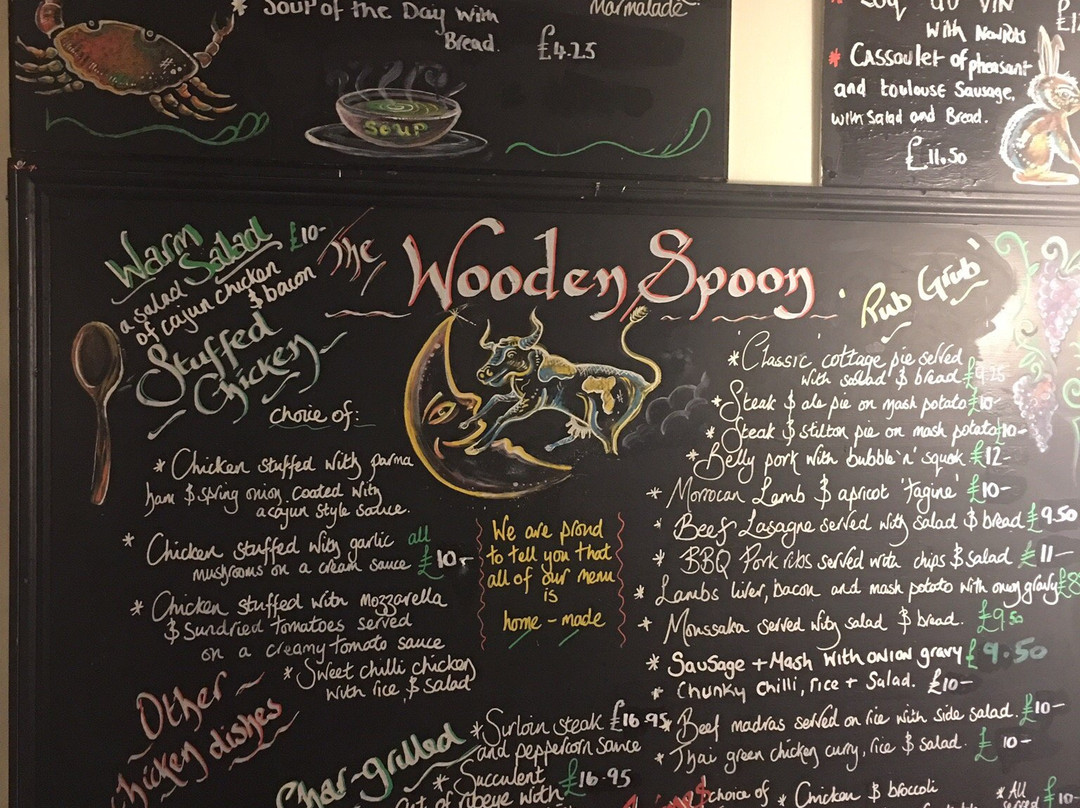 * Soup of the Day with
Bread. £4.25
Marmalade
With New Pots
* Cassoulet of pheasant
and toulouse Sausage,
with Salad and Bread.
£11.50
SOUP
Warm
Salad £10-
a salad
of cajun chicken
$ bacon
The Wooden Spoon
Stuffed
Chicken
choice of:
* Chicken stuffed with parma
ham $ spring onion coated with
a cajun style sauce.
* Chicken stuffed with garlic all
mushrooms on a cream sauce £10-
* Chicken stuffed with Mozzarella
$ Sundried tomatoes served
on a creamy tomato sauce
* Sweet chilli chicken
with rice $ salad
Other
chicken dishes
We are proud
to tell you that
all of our menu
is
home-made
'Pub Grub'
* 'Classic' cottage pie served
with salad $ bread £9.25
* Steak $ ale pie on mash potato £10-
* Steak $ stilton pie on mash potato £10-
* Belly pork with bubble 'n' squek £12-
* Morrocan Lamb $ apricot 'tagine' £10-
* Beef Lasagne served with salad $ bread £9.50
* BBQ Pork ribs served with chips $ salad £11-
* Lambs liver, bacon and mash potato with onion gravy £8
* Moussaka served with salad $ bread. £9.50
* Sausage + Mash with onion gravy £9.50
* Chunky Chilli, rice + Salad. £10-
* Beef madras served on rice with side salad. £10-
* Thai green chicken curry, rice $ salad. £10-
Char-grilled
* Sirloin steak £16.95
and peppercorn sauce
* Succulent £16.95
cut of ribeye with
choice of * Chicken $ broccoli
* All £10-